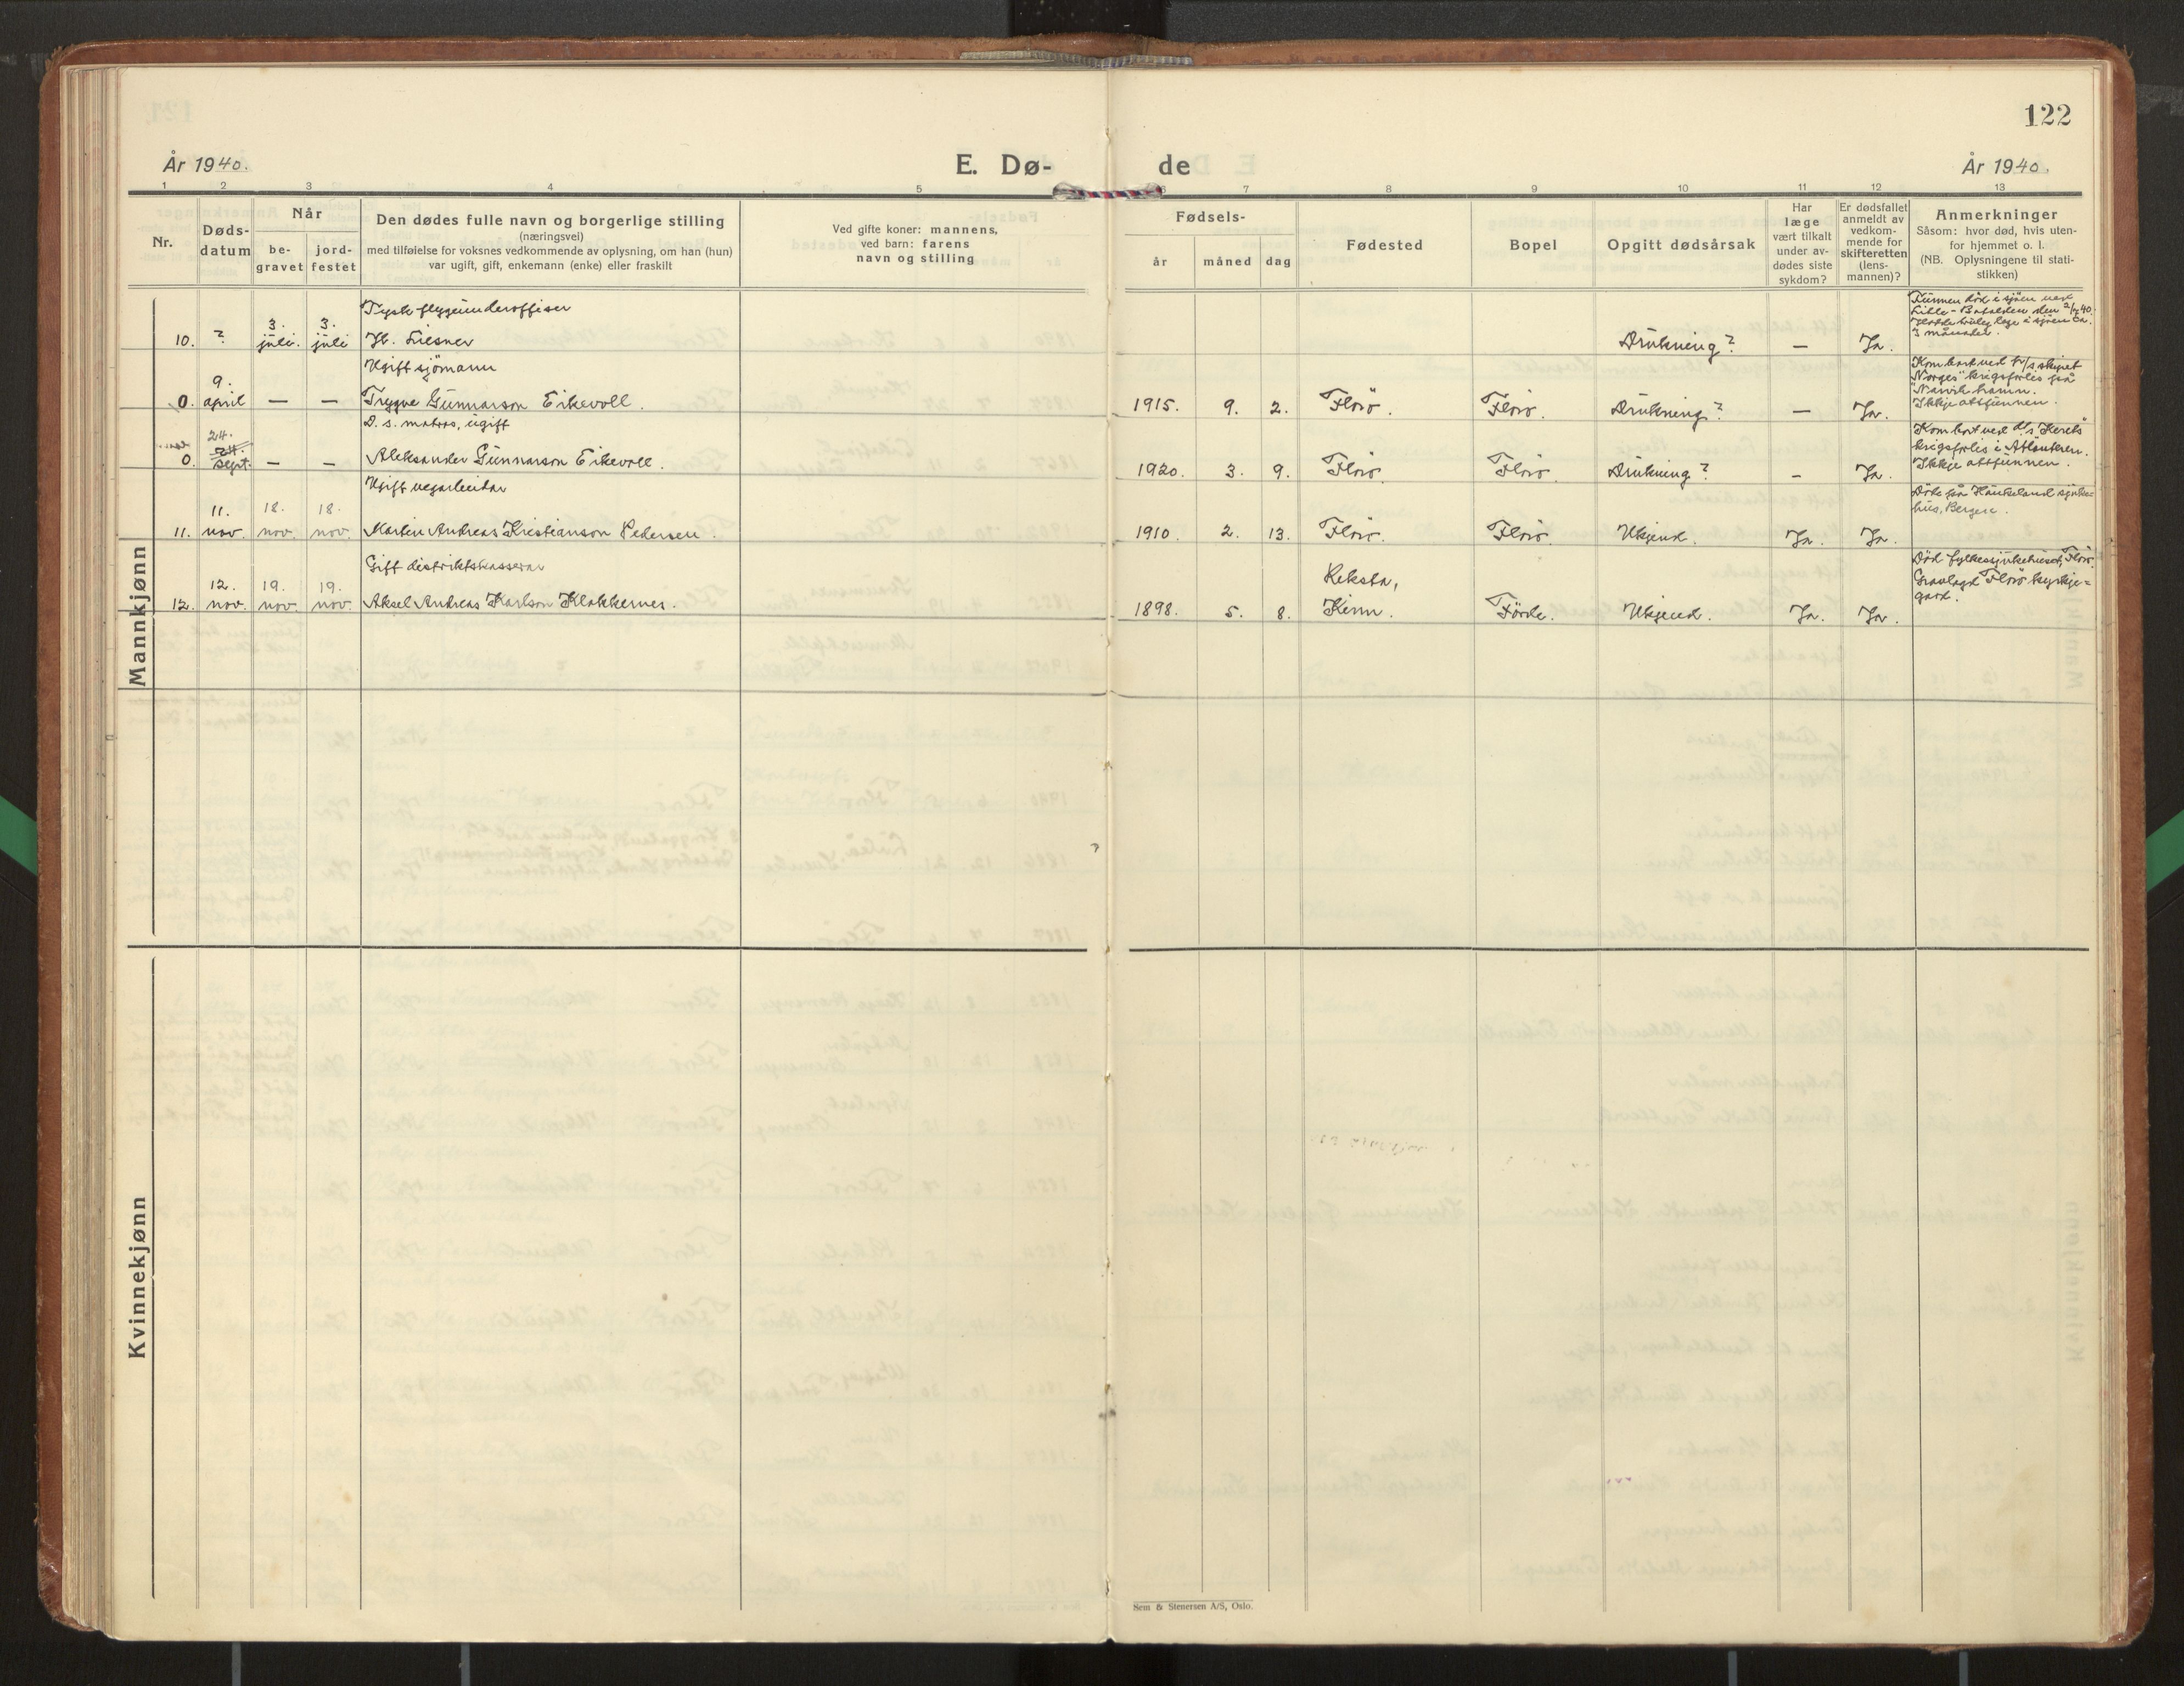 122
År 1940.
E. Dø-
de
År 1940.
1 2 3 4 5 6 7 8 9 10 11 12 13
Nr.
Døds-
datum
Når
be-
gravet
jord-
festet
Den dødes fulle navn og borgerlige stilling
(næringsvei)
med tilføielse for voksnes vedkommende av oplysning, om han (hun)
var ugift, gift, enkemann (enke) eller fraskilt
Ved gifte koner: mannens,
ved barn: farens
navn og stilling
Fødsels-
år måned dag
Fødested
Bopel
Opgitt dødsårsak
Har
læge
vært tilkalt
under av-
dødes siste
sykdom?
Er dødsfallet
anmeldt av
vedkom-
mende for
skifteretten
(lens-
mannen)?
Anmerkninger
Såsom: hvor død, hvis uten-
for hjemmet o. l.
(NB. Oplysningene til stati-
stikken)
Mannkjønn
Tysk flygeunderoffiser
10. ? 3. juli. 3. juli H. Liesner Drukning? — Ja.
Funnen død i sjøen ved
Litle-Batalden den 2/7 40.
3 månader.
Ugift sjømann
0. 9. april — — Trygve Gunnarson Eikevoll. 1915. 9. 2. Florø. Florø. Drukning? — Ja.
Kom bort ved
"Norges" krigsforlis på
Narvik hamn.
Ikkje attfunnen.
D. s. matros, ugift
0. 24. sept. — — Aleksander Gunnarson Eikevoll. 1920. 3. 9. Florø. Florø. Drukning? - Ja.
Kom bort ved d/s
krigsforlis i Atlanteren.
Ikkje attfunnen.
Ugift vegarbeidar
11. 11. nov. 18. nov. 18. nov. Martin Andreas Kristianson Pedersen. 1910. 2. 13. Florø. Florø. Ukjend. Ja. Ja.
Døde på Haukeland sjuke=
hus, Bergen.
Gift distriktskasserar
12. 12. nov. 19. nov. 19. nov. Aksel Andreas Karlson Klakkernes. 1898. 5. 8. Reksta, Kinn. Førde. Ukjend. Ja. Ja.
Død fylkessjukehuset, Florø.
Gravlagd Florø kyrkje=
gard.
Kvinnekjønn
Sem & Stenersen A/S, Oslo.